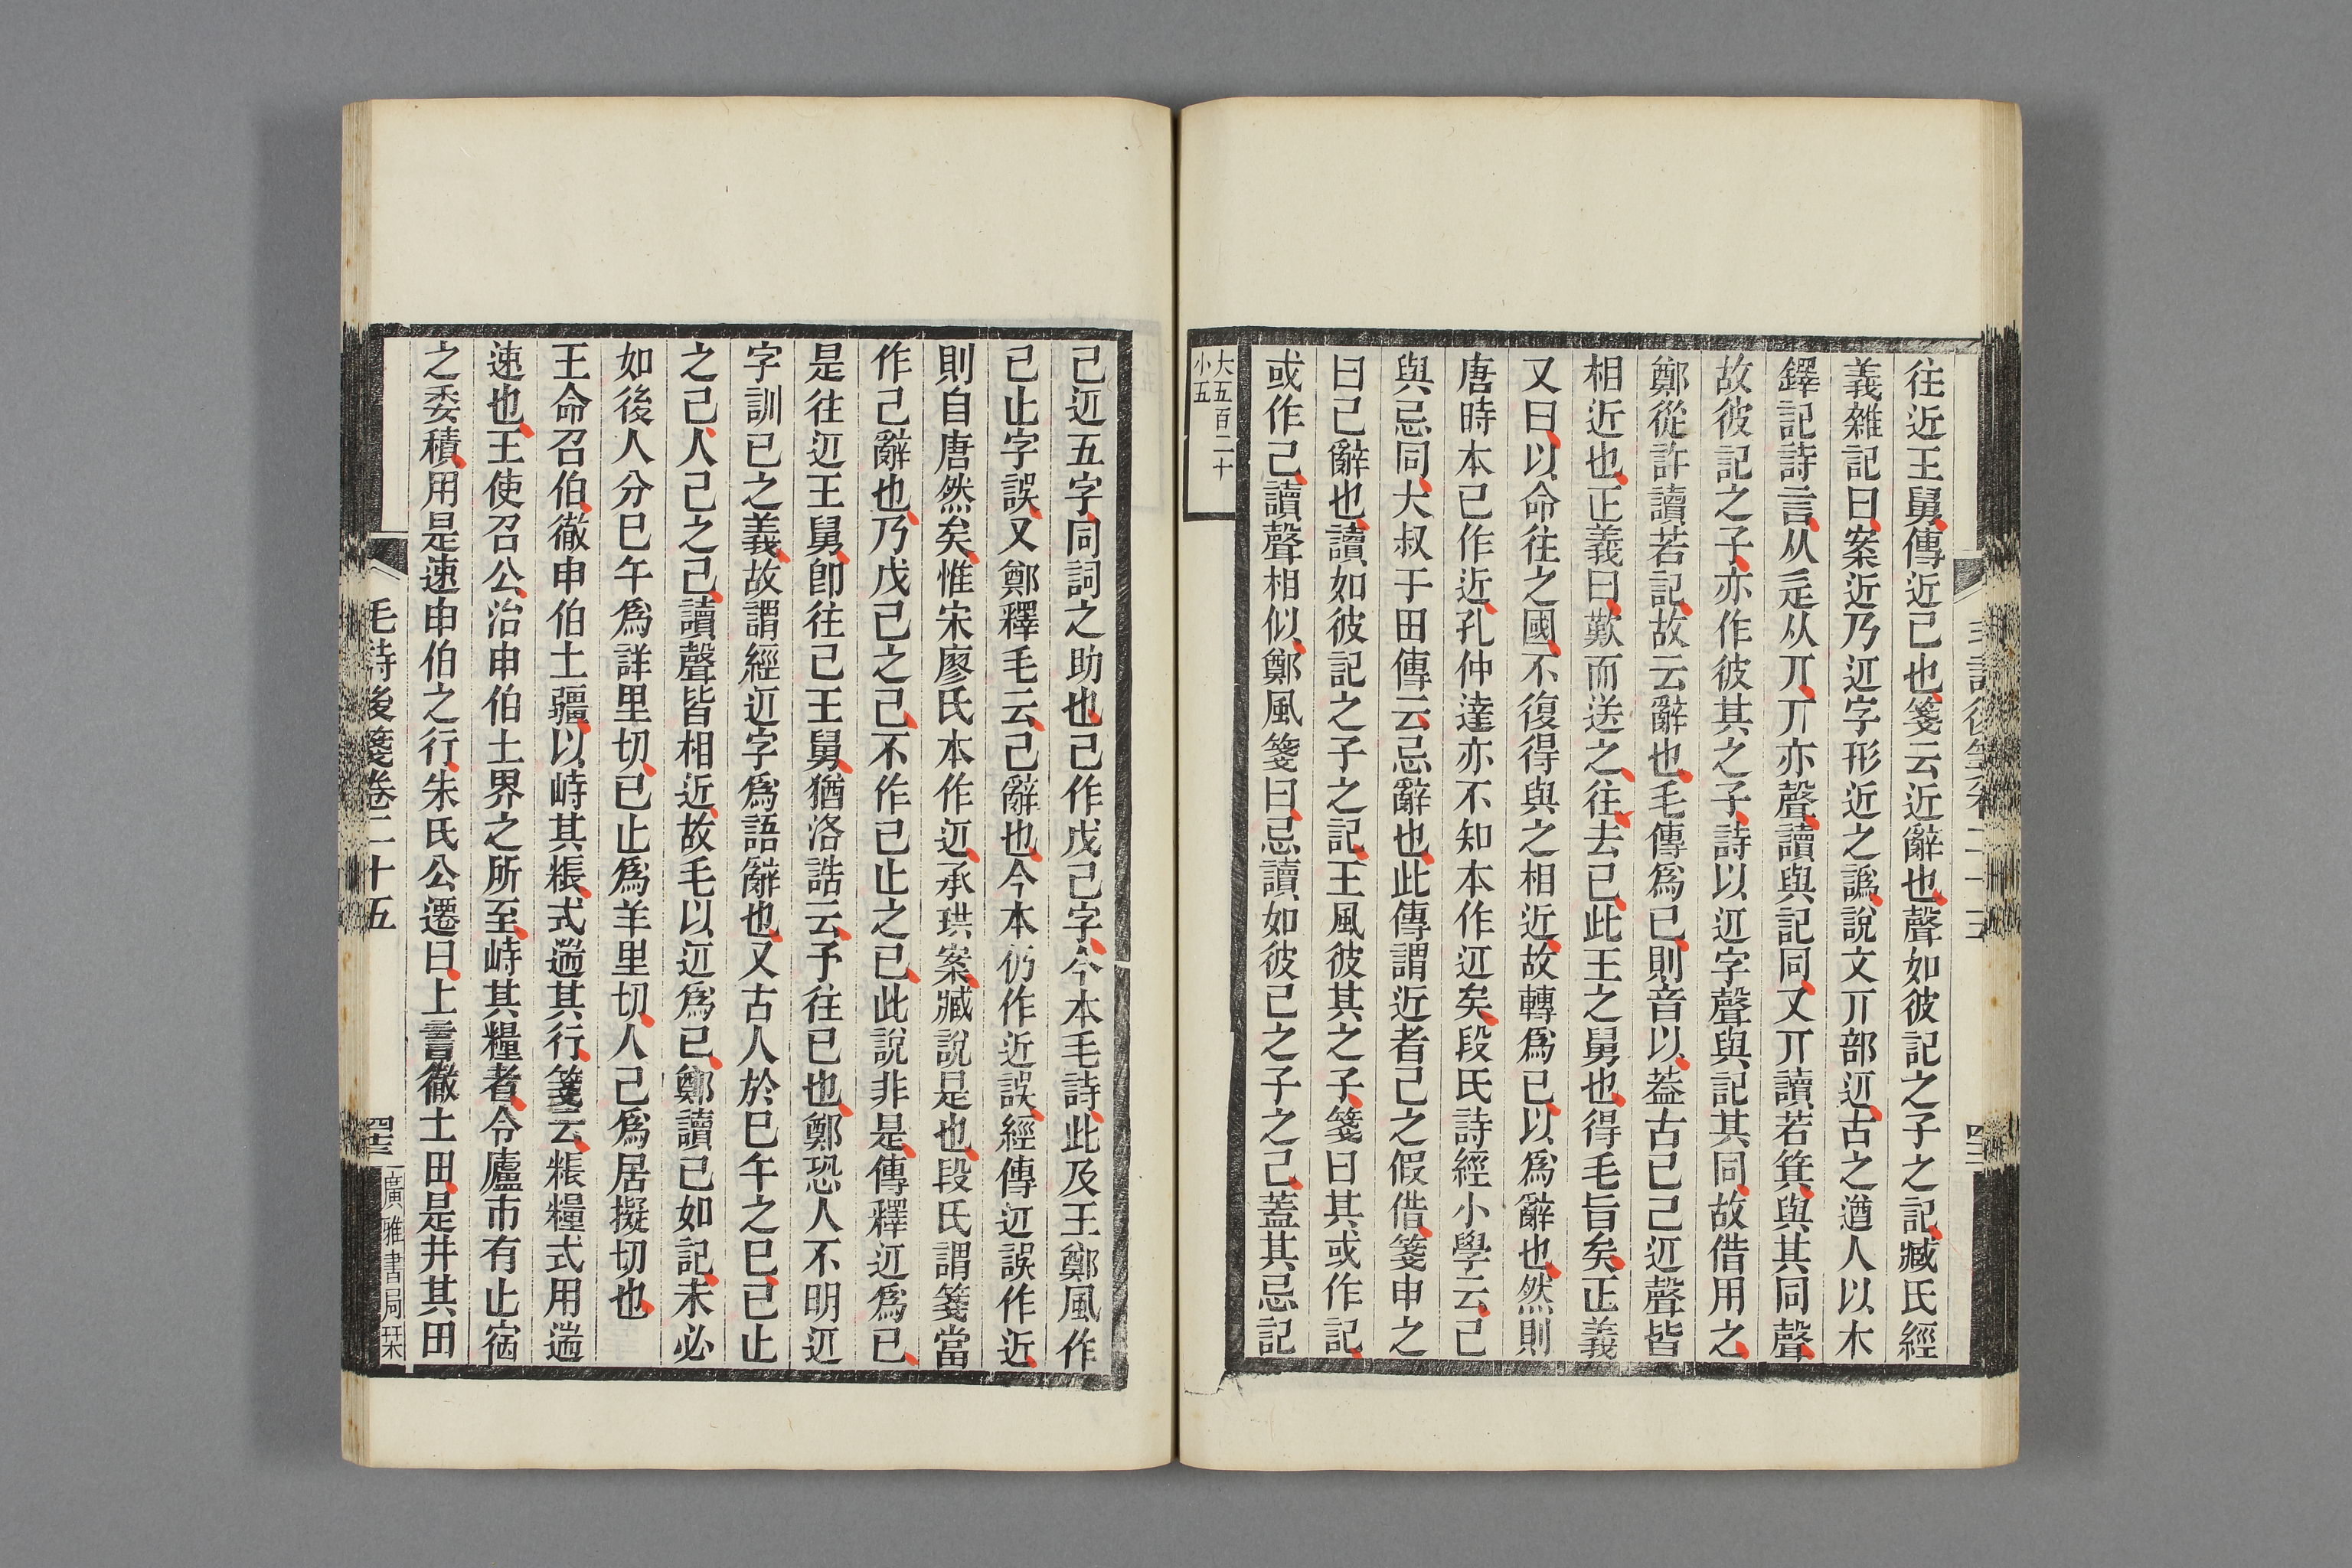 往近王舅傳近己也箋云近辭也聲如彼記之子之記臧氏經
義雜記曰案近乃䢋字形近之譌說文丌部䢋古之遒人以木
鐸記詩言从辵从丌丌亦聲讀與記同又丌讀若箕與其同聲
故彼記之子亦作彼其之子詩以䢋字聲與記其同故借用之
鄭從許讀若記故云辭也毛傳爲已則音以葢古已己䢋聲皆
相近也正義曰歎而送之往去已此王之舅也得毛旨矣正義
又曰以命往之國不復得與之相近故轉爲已以爲辭也然則
唐時本已作近孔仲達亦不知本作䢋矣段氏詩經小學云己
與忌同大叔于田傳云忌辭也此傳謂近者己之假借箋申之
曰己辭也讀如彼記之子之記王風彼其之子箋曰其或作記
或作己讀聲相似鄭風箋曰忌讀如彼己之子之己蓋其忌記
大五百二十
小五
己䢋五字同詞之助也己作戊己字今本毛詩此及王鄭風作
已止字誤又鄭釋毛云己辭也今本仍作近誤經傳䢋誤作近
則自唐然矣惟宋廖氏本作䢋承珙案臧說是也段氏謂箋當
作己辭也乃戊己之己不作已止之已此說非是傳釋䢋爲已
是往䢋王舅卽往已王舅猶洛誥云予往已也鄭恐人不明䢋
字訓已之義故謂經䢋字爲語辭也又古人於巳午之巳已止
之已人己之己讀聲皆相近故毛以䢋爲已鄭讀已如記未必
如後人分巳午爲詳里切已止爲羊里切人己爲居擬切也
王命召伯徹申伯土疆以峙其粻式遄其行箋云粻糧式用遄
速也王使召公治申伯土界之所至峙其糧者令廬市有止宿
之委積用是速申伯之行朱氏公遷曰上言徹土田是井其田
毛詩後箋卷二十五
廣雅書局栞